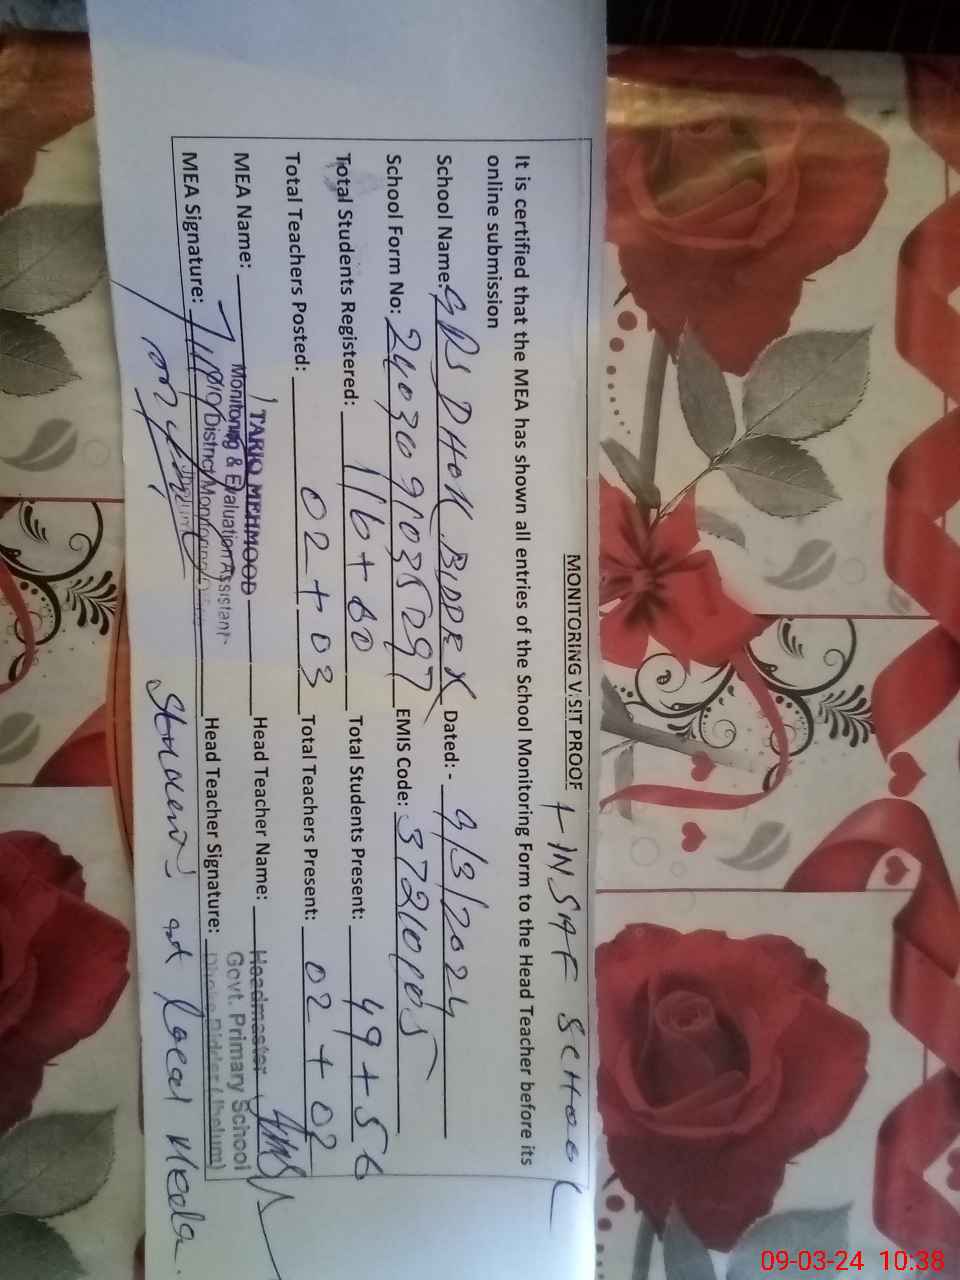 MONITORING VISIT PROOF + INSAF SCHOOL
It is certified that the MEA has shown all entries of the School Monitoring Form to the Head Teacher before its
online submission
School Name: GPS DHOK BIDDER Dated:- 9/3/2024
School Form No: EMIS Code: 37210005
Total Students Registered: 116+80 Total Students Present: 49+56
Total Teachers Posted: 02+03 Total Teachers Present: 02+02
MEA Name: TARIQ MEHMOOD Head Teacher Name: Headmaster
Monitoring & Evaluation Assistant Govt. Primary School
MEA Signature: O/o District Monitoring Head Teacher Signature: Dhoke Bidder (Jhelum)
Jhelum
at local Meela.
09-03-24 10:38